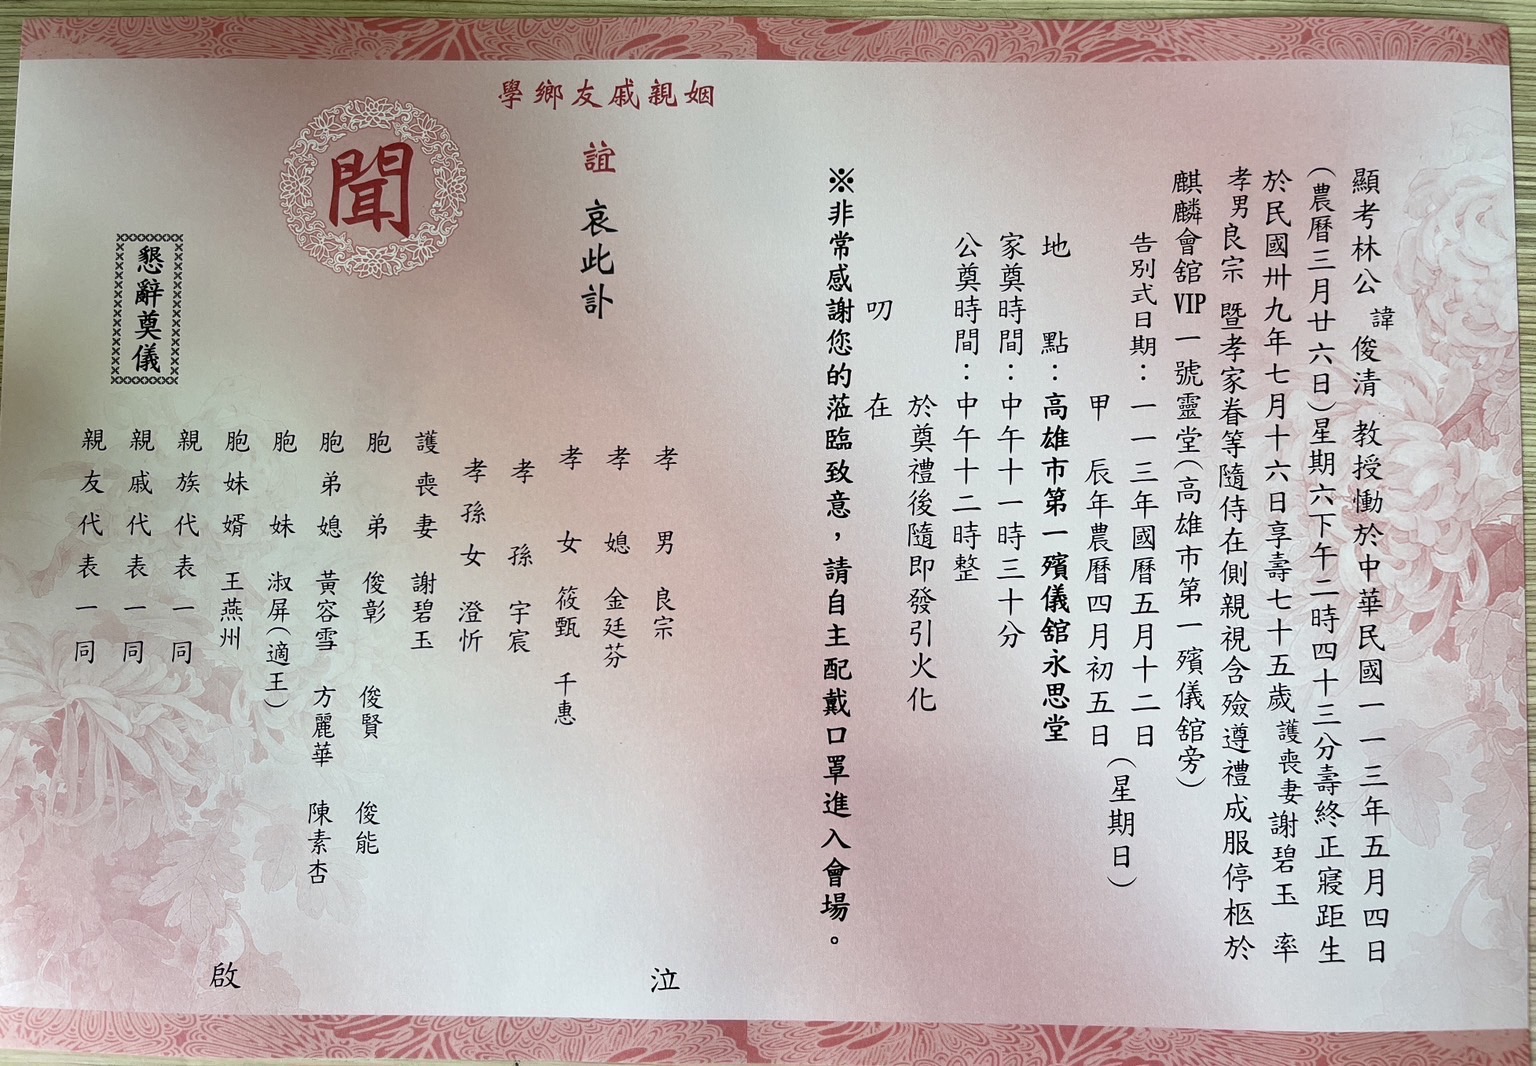 顯考林公諱俊清 教授慟於中華民國一一三年五月四日
(農曆三月廿六日)星期六下午二時四十三分壽終正寢距生
於民國卅九年七月十六日享壽七十五歲護喪妻謝碧玉 率
孝男良宗 暨孝家眷等隨侍在側親視含殮遵禮成服停柩於
麒麟會舘VIP一號靈堂(高雄市第一殯儀舘旁)
告別式日期:一一三年國曆五月十二日
甲辰年農曆四月初五日
(星期日)
地點:高雄市第一殯儀舘永思堂
家奠時間:中午十一時三十分
公奠時間:中午十二時整
於奠禮後隨即發引火化
叨在
※非常感謝您的蒞臨致意,請自主配戴口罩進入會場。
姻親戚友鄉學
誼 哀此訃
聞
孝男 良宗
孝媳 金廷芬
孝女 筱甄 千惠
孝孫 宇宸
孝孫女 澄忻
護喪妻 謝碧玉
胞弟 俊彰 俊賢 俊能
胞弟媳 黃容雪 方麗華 陳素杏
胞妹 淑屏(適王)
胞妹婿 王燕州
親族代表一同
親戚代表一同
親友代表一同
泣
啟
懇辭奠儀